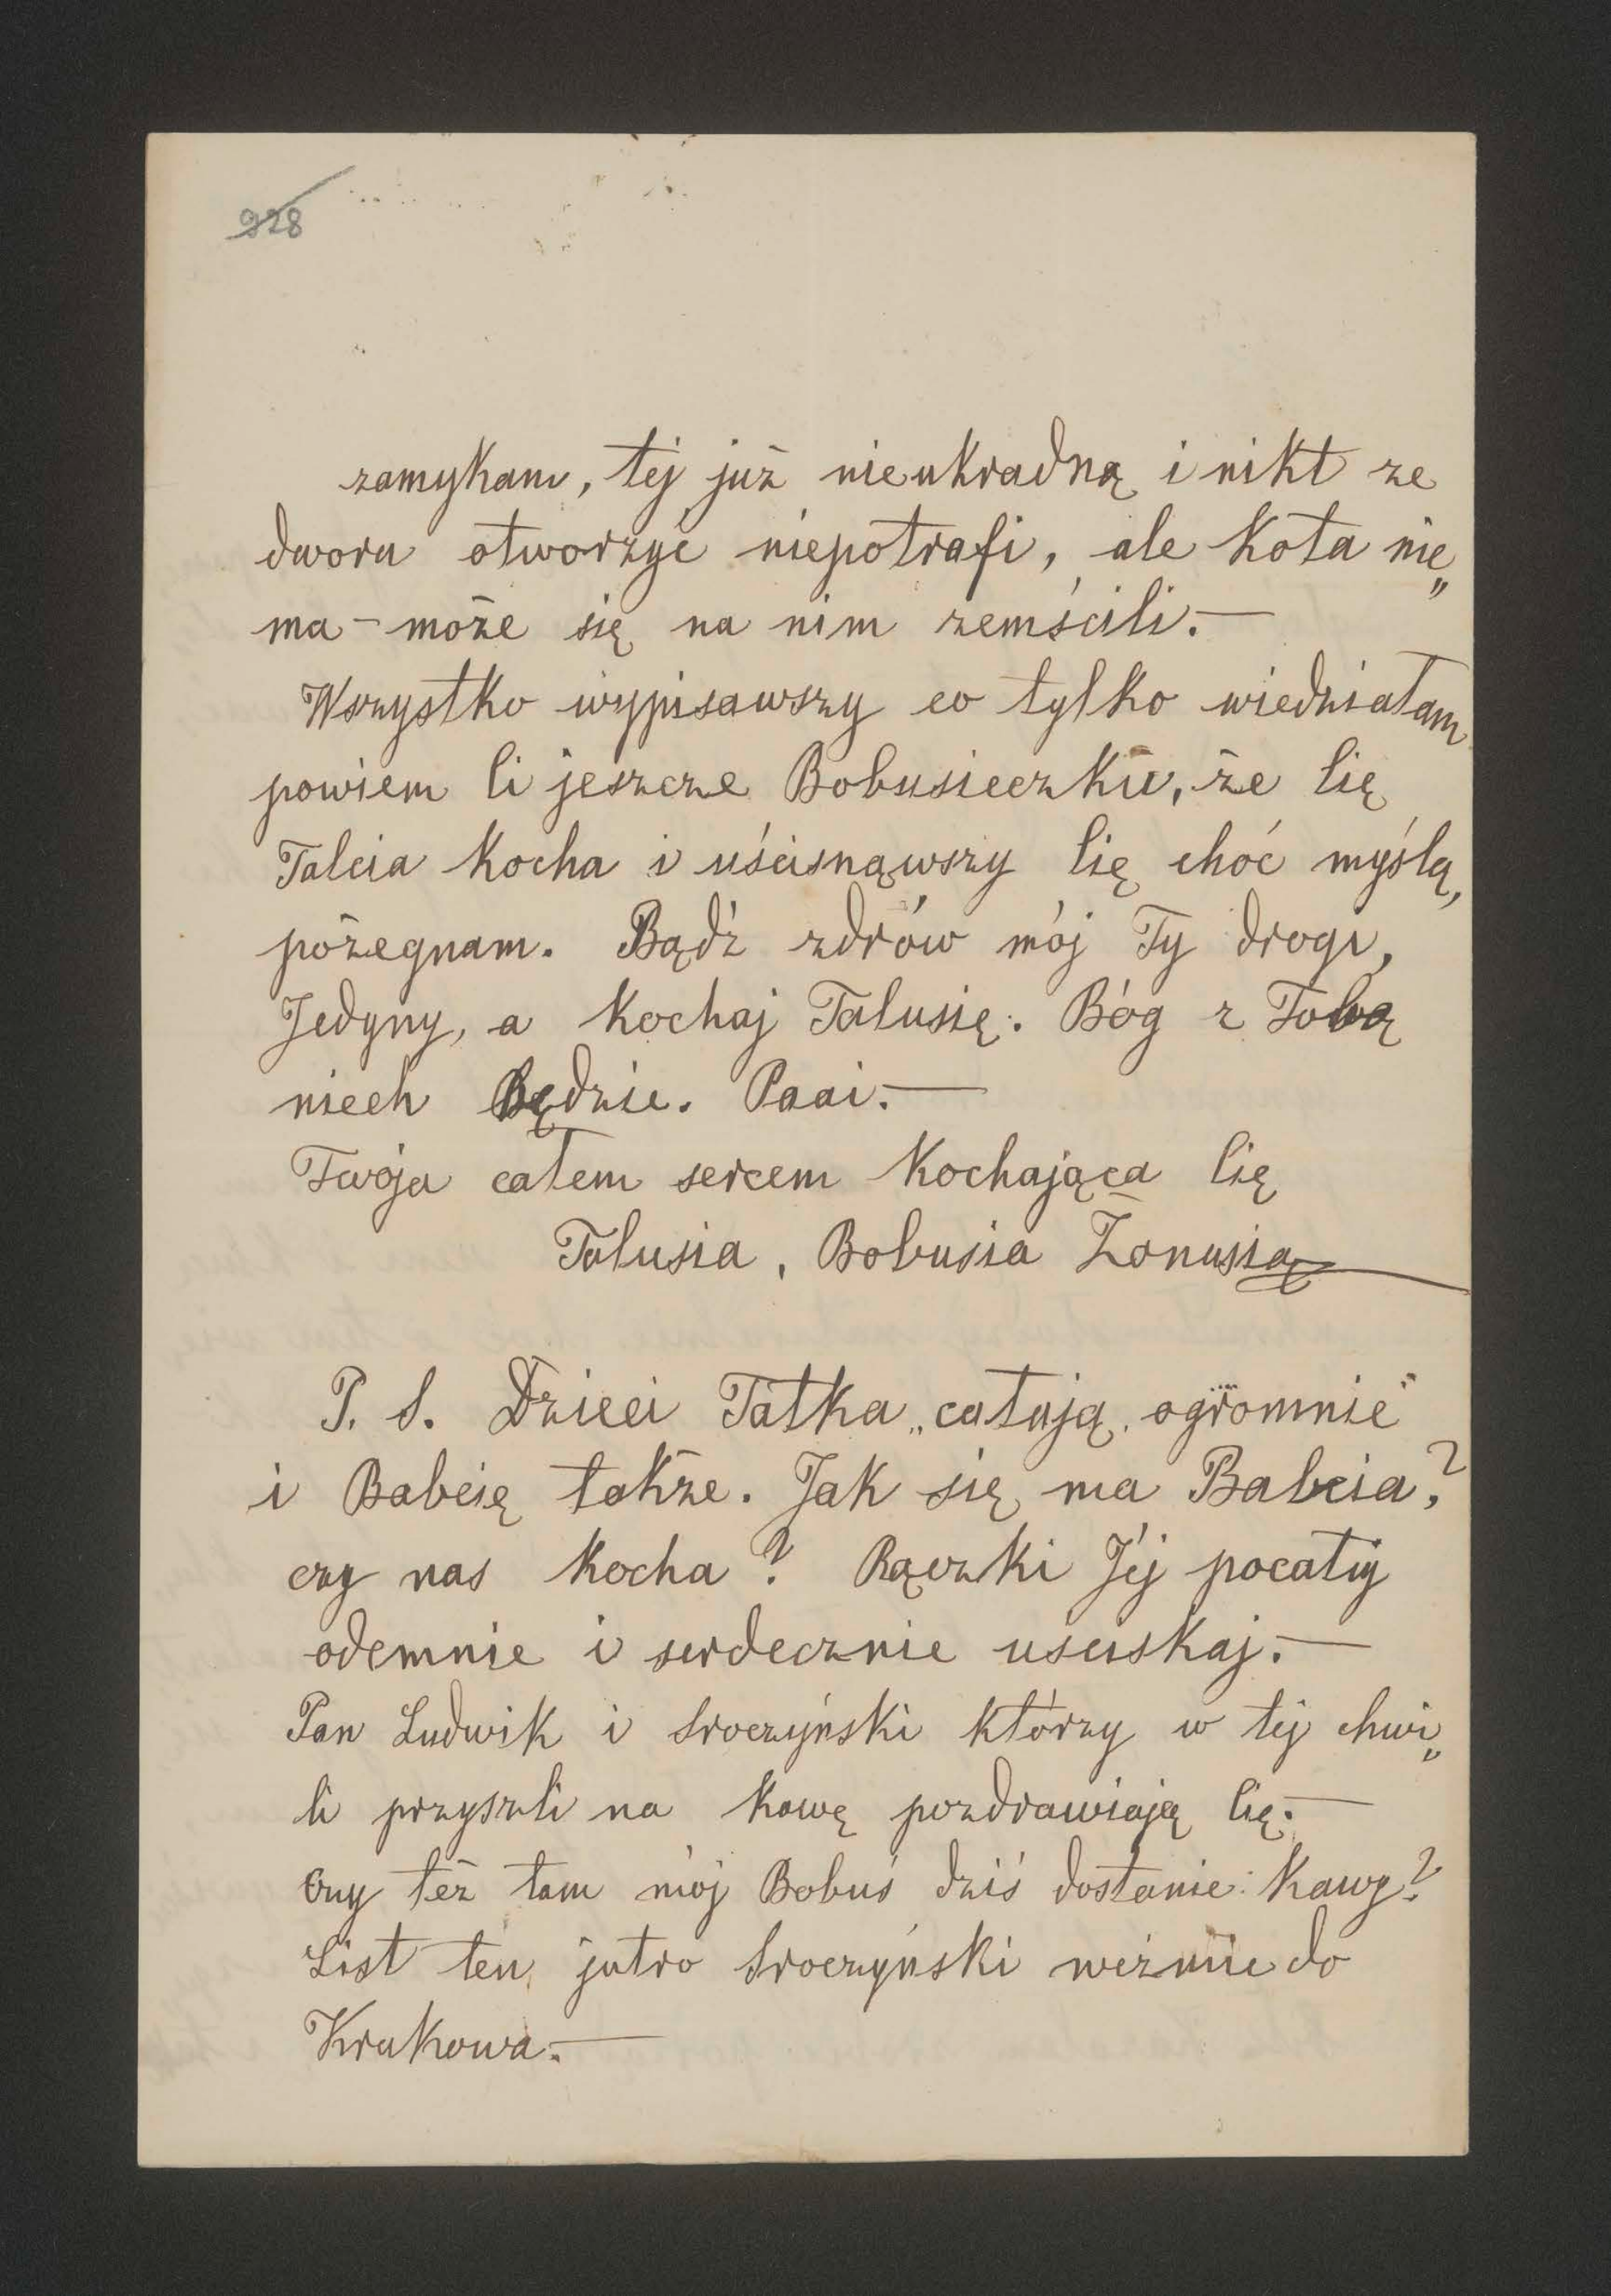 928
zamykam, tej już nieukradną i nikt ze
dwora otworzyć niepotrafi, ale kota nie„
ma – może się na nim zemścili. —
Wszystko wypisawszy co tylko wiedziałam
powiem Ci jeszcze Bobusieczku, że Cię
Talcia kocha i uścisnąwszy Cię choć myślą,
pożegnam. Bądź zdrów mój Ty drogi,
Jedyny, a kochaj Talusię. Bóg z Tobą
niech będzie. Paai. —
Twoja całem sercem kochająca Cię
Talusia, Bobusia Żonusia
P. S. Dzieci Tatka „całują ogromnie"
i Babcię także. Jak się ma Babcia?
czy nas kocha? Rączki Jéj pocałuj
odemnie i serdecznie usciskaj. —
Pan Ludwik i Sroczyński którzy w tej chwi„
li przyszli na kawę pozdrawiają Cię. —
Czy też tam mój Bobuś dziś dostanie kawy?
List ten jutro Sroczyński weźmie do
Krakowa. —